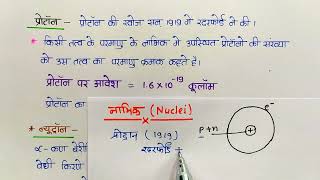 प्रोटॉन :- प्रोटॉन की खोज सन् 1919 में रदरफोर्ड ने की।
* किसी तत्व के परमाणु के नाभिक में उपस्थित प्रोटॉनों की संख्या
को उस तत्व का परमाणु क्रमांक कहते है।
प्रोटॉन पर आवेश = 1.6 × 10⁻¹⁹ कूलॉम
प्रोटॉन का
नाभिक (Nuclei)
×
* न्यूट्रॉन
प्रोटॉन (1919)
रदरफोर्ड +
p+n
+
e⁻
α-कण